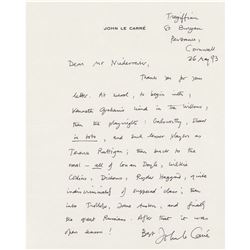 JOHN LE CARRÉ
Tregiffian
St Buryan
Penzance,
Cornwall
26 May 93
Dear Mr
Thank you for your
letter. At school, to begin with,
Kenneth Grahame's Wind in the Willows,
then the playwrights: Galsworthy, Shaw
in toto, and such lesser players as
Terence Rattigan; then back to the
novel - all of Conan Doyle, Wilkie
Collins, Dickens, Ryder Haggard, quite
indiscriminately of supposed class; then
into Trollope, Jane Austen, and finally
the great Russians. After that it was
open season!
Best John le Carré